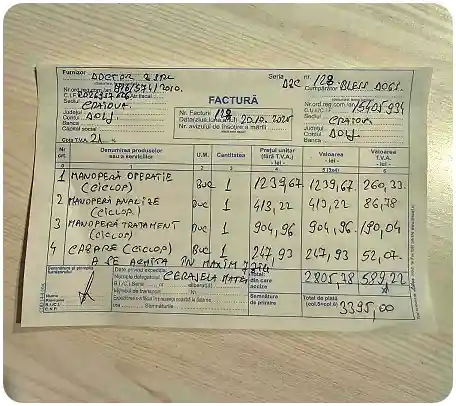 Furnizor DOCTOR 2 SRL
Seria DZC nr. 128
Nr.ord.reg.com./an
C.I.F.
Sediul CRAIOVA
Județul DOLJ
Contul
Banca
Capital social
Cota T.V.A. 21 %
FACTURĂ
Nr. Facturii 128
Data(ziua,luna,anul) 20.10.2025
Nr. avizului de însoțire a mărfii
Cumpărător
Nr.ord.reg.com./an
Sediul CRAIOVA
Județul DOLJ
Contul
Banca
Nr. crt. Denumirea produselor sau a serviciilor U.M. Cantitatea Prețul unitar (fără T.V.A.) - lei - Valoarea - lei - Valoarea T.V.A. - lei -
0 1 2 3 4 5 (3x4) 6
1 MANOPERĂ OPERATIE BUC 1 1239,67 1239,67 260,33
(CICLOP)
2 MANOPERĂ ANALIZE BUC 1 413,22 413,22 86,78
(CICLOP)
3 MANOPERĂ TRATAMENT BUC 1 904,96 904,96 190,04
(CICLOP)
4 CAZARE (CICLOP) BUC 1 247,93 247,93 52,07
A SE ACHITA IN MAXIM 7 ZILE
Semnătura și ștampila furnizorului
Date privind expediția
Numele delegatului
Total: din care accize 2805,78 589,22
Semnătura de primire
Total de plată (col.5+col.6) 3395,00